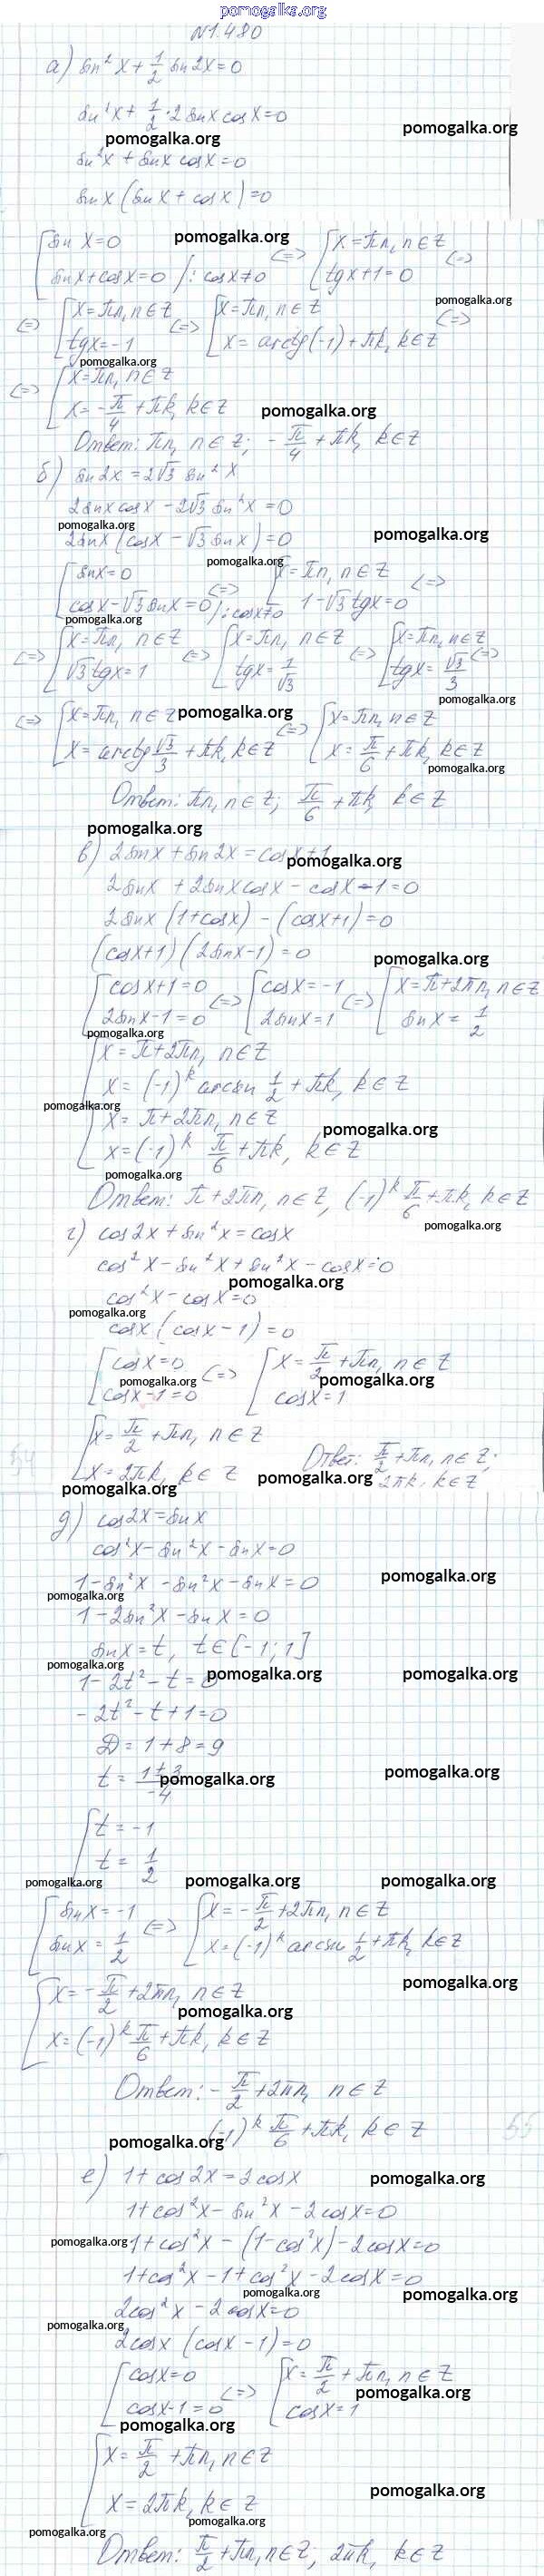 pomogalka.org
№1.480
а) sin² x + 1/2 sin 2x = 0
sin² x + 1/2 · 2 sin x cos x = 0
pomogalka.org pomogalka.org
sin² x + sin x cos x = 0
sin x (sin x + cos x) = 0
[ sin x = 0 pomogalka.org <=> [ x = πn, n ∈ Z <=>
sin x + cos x = 0 /: cos x ≠ 0 tg x + 1 = 0
pomogalka.org
<=> [ x = πn, n ∈ Z <=> [ x = πn, n ∈ Z <=>
tg x = -1 x = arctg(-1) + πk, k ∈ Z
pomogalka.org
<=> [ x = πn, n ∈ Z
x = -π/4 + πk, k ∈ Z pomogalka.org
Ответ: πn, n ∈ Z; -π/4 + πk, k ∈ Z
б) sin 2x = 2√3 sin² x
2 sin x cos x - 2√3 sin² x = 0
pomogalka.org pomogalka.org
2 sin x (cos x - √3 sin x) = 0
pomogalka.org
[ sin x = 0 <=> [ x = πn, n ∈ Z <=>
cos x - √3 sin x = 0 /: cos x ≠ 0 1 - √3 tg x = 0
pomogalka.org
<=> [ x = πn, n ∈ Z <=> [ x = πn, n ∈ Z <=> [ x = πn, n ∈ Z <=>
√3 tg x = 1 tg x = 1/√3 tg x = √3/3
pomogalka.org
<=> [ x = πn, n ∈ Z pomogalka.org <=> [ x = πn, n ∈ Z
x = arctg √3/3 + πk, k ∈ Z x = π/6 + πk, k ∈ Z
pomogalka.org
Ответ: πn, n ∈ Z; π/6 + πk, k ∈ Z
pomogalka.org
в) 2 sin x + sin 2x = cos x + 1
pomogalka.org
2 sin x + 2 sin x cos x - cos x - 1 = 0
2 sin x (1 + cos x) - (cos x + 1) = 0
(cos x + 1)(2 sin x - 1) = 0
pomogalka.org
[ cos x + 1 = 0 <=> [ cos x = -1 <=> [ x = π + 2πn, n ∈ Z
2 sin x - 1 = 0 2 sin x = 1 sin x = 1/2
pomogalka.org
[ x = π + 2πn, n ∈ Z
x = (-1)^k arcsin 1/2 + πk, k ∈ Z
pomogalka.org
[ x = π + 2πn, n ∈ Z pomogalka.org
x = (-1)^k π/6 + πk, k ∈ Z
pomogalka.org
Ответ: π + 2πn, n ∈ Z, (-1)^k π/6 + πk, k ∈ Z
pomogalka.org
г) cos 2x + sin² x = cos x
cos² x - sin² x + sin² x - cos x = 0
pomogalka.org
cos² x - cos x = 0
pomogalka.org
cos x (cos x - 1) = 0
[ cos x = 0 <=> [ x = π/2 + πn, n ∈ Z
pomogalka.org pomogalka.org
cos x - 1 = 0 cos x = 1
[ x = π/2 + πn, n ∈ Z
x = 2πk, k ∈ Z
Ответ: π/2 + πn, n ∈ Z;
2πk, k ∈ Z
pomogalka.org pomogalka.org
д) cos 2x = sin x
cos² x - sin² x - sin x = 0
1 - sin² x - sin² x - sin x = 0 pomogalka.org
pomogalka.org
1 - 2 sin² x - sin x = 0
sin x = t, t ∈ [-1; 1]
pomogalka.org
1 - 2t² - t = 0 pomogalka.org pomogalka.org
-2t² - t + 1 = 0
D = 1 + 8 = 9
t = (1 ± 3)/-4 pomogalka.org pomogalka.org
[ t = -1
t = 1/2
pomogalka.org pomogalka.org pomogalka.org
[ sin x = -1 <=> [ x = -π/2 + 2πn, n ∈ Z
sin x = 1/2 x = (-1)^k arcsin 1/2 + πk, k ∈ Z
pomogalka.org
[ x = -π/2 + 2πn, n ∈ Z
pomogalka.org
x = (-1)^k π/6 + πk, k ∈ Z
Ответ: -π/2 + 2πn, n ∈ Z
(-1)^k π/6 + πk, k ∈ Z
pomogalka.org
е) 1 + cos 2x = 2 cos x pomogalka.org
1 + cos² x - sin² x - 2 cos x = 0
pomogalka.org 1 + cos² x - (1 - cos² x) - 2 cos x = 0
1 + cos² x - 1 + cos² x - 2 cos x = 0
pomogalka.org pomogalka.org
2 cos² x - 2 cos x = 0
pomogalka.org
2 cos x (cos x - 1) = 0
[ cos x = 0 <=> [ x = π/2 + πn, n ∈ Z
cos x - 1 = 0 cos x = 1
pomogalka.org
pomogalka.org
[ x = π/2 + πn, n ∈ Z
pomogalka.org
x = 2πk, k ∈ Z
pomogalka.org
pomogalka.org
Ответ: π/2 + πn, n ∈ Z; 2πk, k ∈ Z